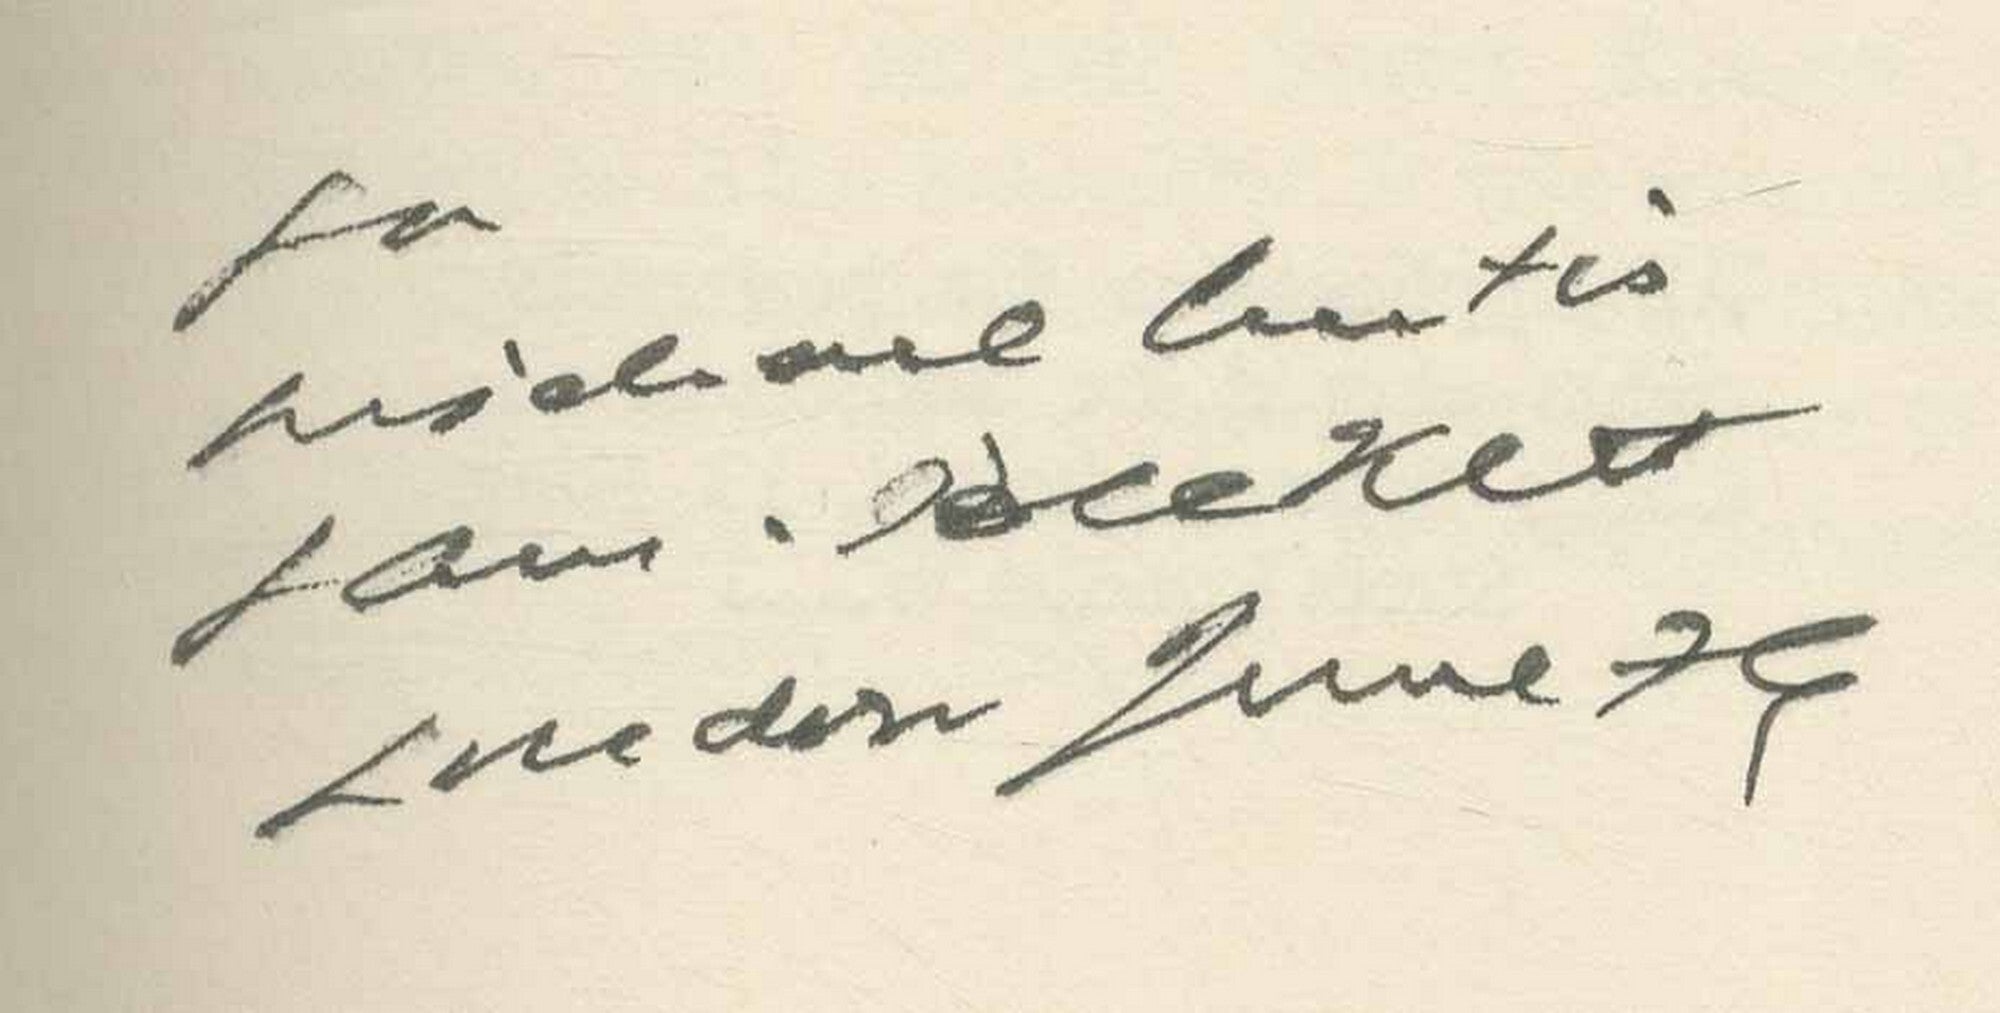 for
Michael Curtis
Sam. Beckett
London June 79